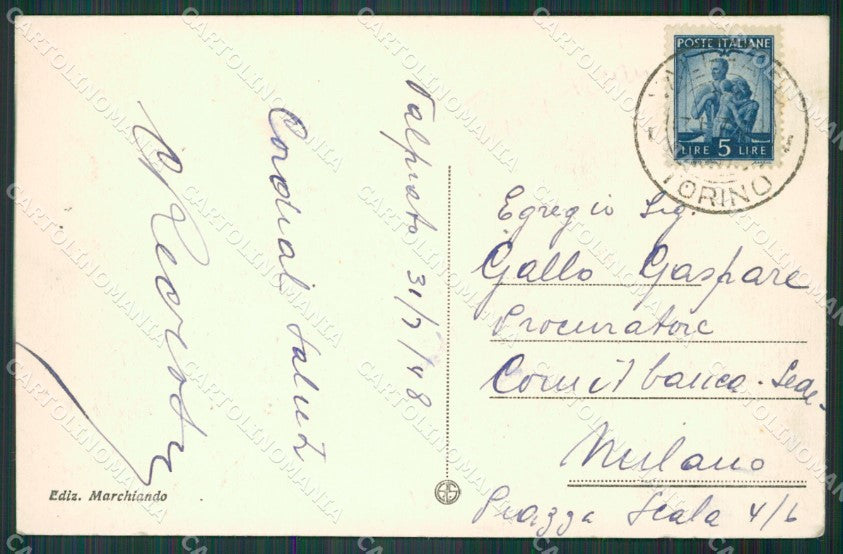 Valprato 31/7/48
Cordiali saluti
POSTE ITALIANE
LIRE 5 LIRE
TORINO
Egregio Sig.
Gallo Gaspare
Procuratore
Comit banca - Sede
Milano
Piazza Scala 4/6
Ediz. Marchiando
CARTOLINOMANIA